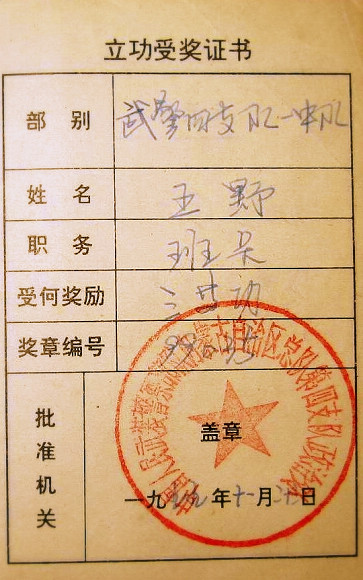 立功受奖证书
部 别 武警四支队一中队
姓 名 王野
职 务 班长
受何奖励 三等功
奖章编号
批准机关
中国人民武装警察部队内蒙古自治区总队第四支队政治处
盖章
一九九九年十一月二十日